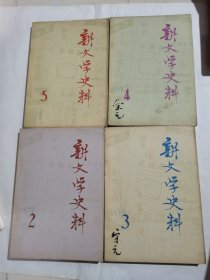 新文学史料
5
新文学史料
4
新文学史料
2
新文学史料
3